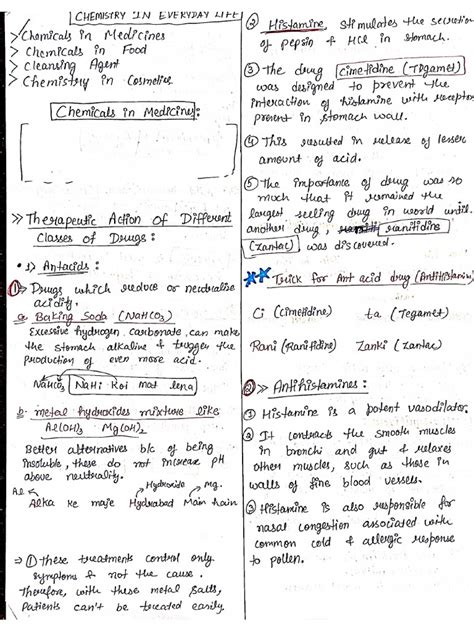 CHEMISTRY IN EVERYDAY LIFE
> Chemicals in Medicines
> Chemicals in Food
> Cleansing Agent
> Chemistry in Cosmetics
Chemicals in Medicines:
>> Therapeutic Action Of Different
Classes of Drugs:
• 1) Antacids:
①> Drugs which reduce or neutralise
acidity.
a Baking Soda (NaHCO3)
Excessive hydrogen carbonate can make
the stomach alkaline & trigger the
production of even more acid.
NaHCO3 NaHi Koi mat lena
b. metal hydroxides mixture like
Al(OH)3 Mg(OH)2
Better alternatives b/c of being
insoluble, these do not increase pH
above neutrality.
Al Hydroxide Mg.
Alka ke maje Hydrabad Main hain
⇒ ① These treatments control only
symptoms & not the cause.
Therefore, with these metal salts,
Patients can't be treated easily
② Histamine stimulates the secretion
of pepsin & HCl in stomach.
③ The drug cimetidine (Tegamet)
was designed to prevent the
interaction of histamine with receptors
present in stomach wall.
④ This resulted in release of lesser
amount of acid.
⑤ The importance of drug was so
much that it remained the
largest selling drug in world until
another drug, ranitidine
(Zantac) was discovered.
** Trick for Ant acid drug (Antihistamin)
Ci (Cimetidine) ta (Tegamet)
Rani (Ranitidine) Zanki (Zantac)
②>> Antihistamines:
① Histamine is a potent vasodilator.
② It contracts the smooth muscles
in bronchi and gut & relaxes
other muscles, such as those in
walls of fine blood vessels.
③ Histamine is also responsible for
nasal congestion associated with
common cold & allergic response
to pollen.